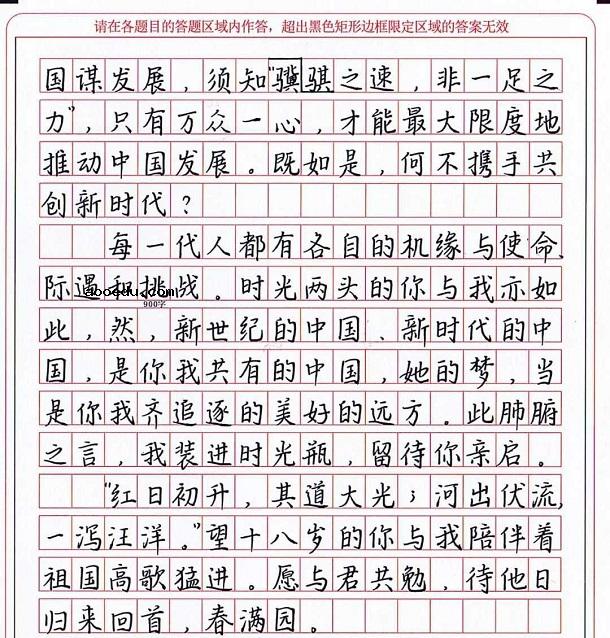 请在各题目的答题区域内作答，超出黑色矩形边框限定区域的答案无效
国谋发展，须知"骥骐之速，非一足之
力"，只有万众一心，才能最大限度地
推动中国发展。既如是，何不携手共
创新时代？
每一代人都有各自的机缘与使命、
际遇和挑战。时光两头的你与我亦如
900字
此，然，新世纪的中国、新时代的中
国，是你我共有的中国，她的梦，当
是你我齐追逐的美好的远方。此肺腑
之言，我装进时光瓶，留待你亲启。
"红日初升，其道大光；河出伏流，
一泻汪洋。"望十八岁的你与我陪伴着
祖国高歌猛进。愿与君共勉，待他日
归来回首，春满园。